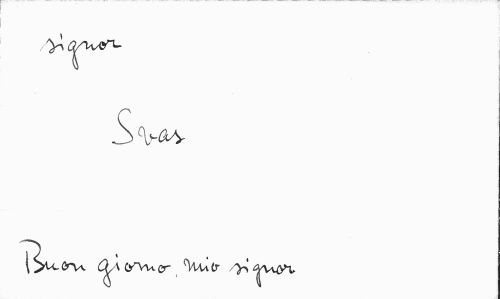 signor
Svas
Buon giorno, mio signor